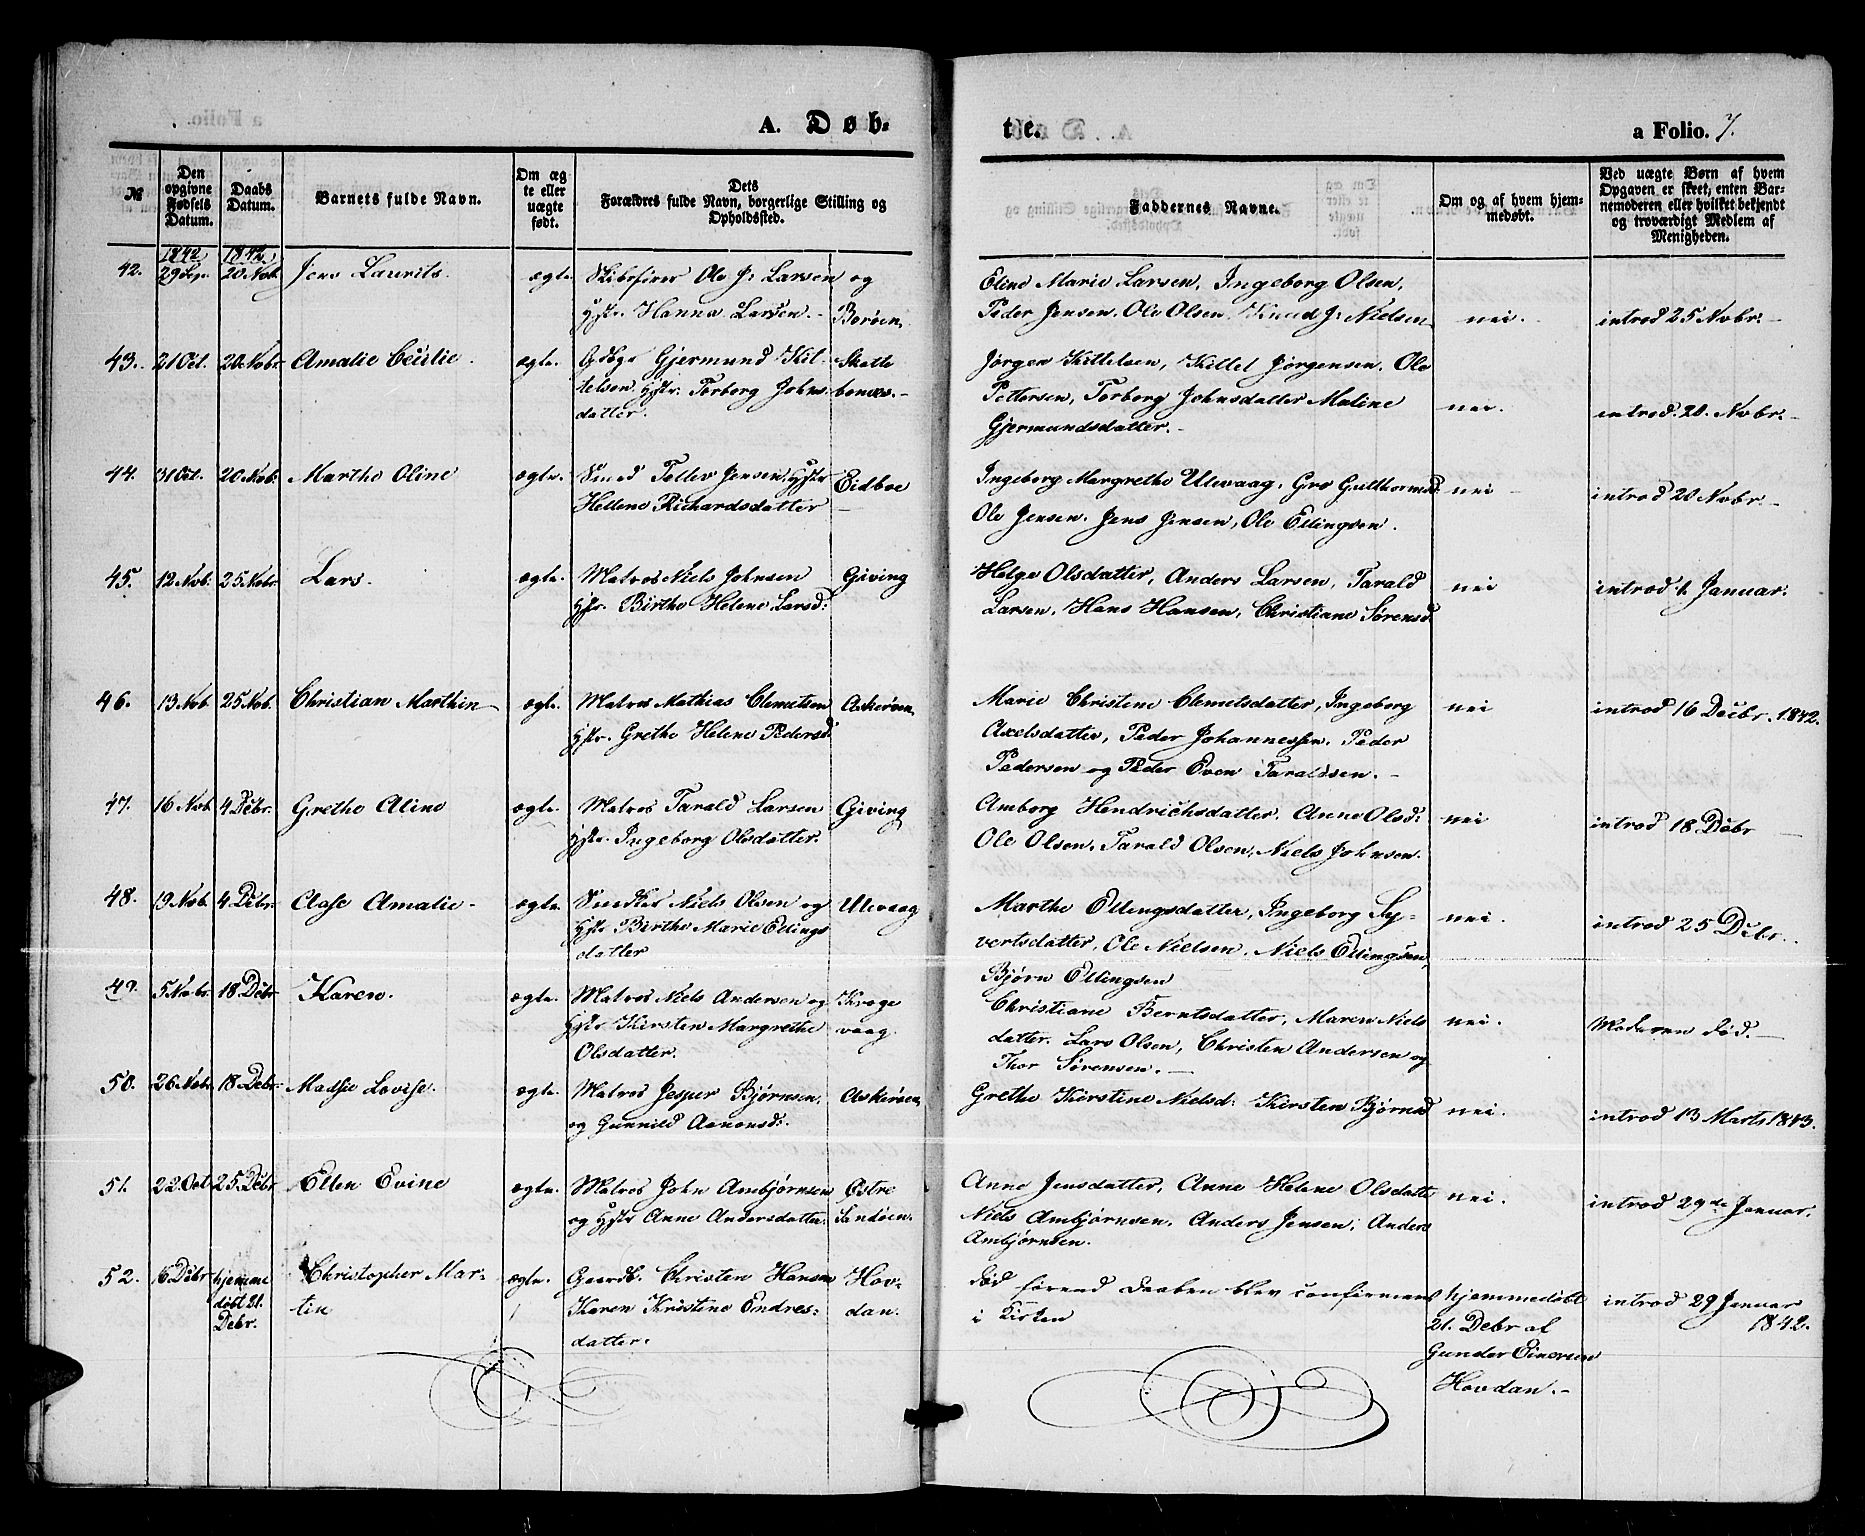 A. Døb-
te.
a Folio. 7.
№
Den opgivne Fødsels Datum.
Daabs Datum.
Barnets fulde Navn.
Om ægte eller uægte født.
Dets Forældres fulde Navn, borgerlige Stilling og Opholdssted.
Faddernes Navne.
Om og af hvem hjemmedøbt.
Ved uægte Børn af hvem Opgaven er skeet, enten Barnemoderen eller hvilket bekjendt og troværdigt Medlem af Menigheden.
1842 1842
42. 20 Nob. Jens Laurits. ægte. Skibsfører Ole J: Larsen og
Hstr. Hanna Larsen. - Borøen.
Eline Marie Larsen, Ingeborg Olsen,
Peder Jensen, Ole Olsen, Knud J: Nielsen
nei. introd 25 Nobr. -
43. 21 Oct. 20 Nobr. Amalie Cecilie. ægte. Gdbgr Gjermund Kit-
telsen Hstr. Torborg Johns-
datter.
Jørgen Kittelsen, Kittel Jørgensen, Ole
Pettersen, Torborg Johnsdatter Maline
Gjermundsdatter. -
nei. introd. 20. Nobr. -
44. 31 Oct. 20 Nob. Marthe Oline ægte. Smed Tellev Jensen, Hstr
Hellene Richardsdatter
Eidboe
Ingeborg Margrethe Ulevaag, Gro Gutthormsd.
Ole Jensen, Jens Jensen, Ole Ellingsen.
nei - introd 20 Nobr. -
45. 12 Nob. 25 Nobr. Lars. ægte. Matros Niels Johnsen
Hstr. Birthe Helene Larsd:
Giving
Helge Olsdatter, Anders Larsen, Tarald
Larsen, Hans Hansen, Christiane Sørensd.
nei introd 1. Januar.
46. 13 Nob. 25 Nob. Christian Marthin ægte. Matros Mathias Clemetsen
Hstr. Grethe Helene Pedersd.
Askerøen
Marie Christene Clemetsdatter, Ingeborg
Axelsdatter, Peder Johannessen, Peder
Pedersen og Peder Even Taraldsen. -
nei introd 16 Decbr. 1842.
47. 16 Nob. 4 Debr. Grethe Aline ægte. Matros Tarald Larsen
Hstr. Ingeborg Olsdatter.
Giving
Amborg Hendrichsdatter, Anne Olsd:
Ole Olsen, Tarald Olsen, Niels Johnsen.
nei introd 18. Debr -
48. 19 Nob. 4 Debr. Aase Amalie - ægte Snedker Niels Olsen og
Hstr Birthe Marie Ellings
datter
Ulevaag
Marthe Ellingsdatter, Ingeborg Sy-
vertsdatter, Ole Nielsen, Niels Ellingsen,
Bjørn Ellingsen
nei. introd 25 Debr.
49. 5 Nobr. 18 Debr Karen. ægte. Matros Niels Andersen og
Hstr Kirsten Margrethe
Olsdatter.
Krage
vaag.
Christiane Berntsdatter, Maren Niels
datter. Lars Olsen, Christen Andersen og
Thor Sørensen. -
nei. Moderen død. -
50. 26 Nob. 18 Debr. Madsie Lovise. ægte. Matros Jesper Bjørnsen.
og Gunnild Aanonsd:.
Askerøen
Grethe Kirstine Nielsd: Kirsten Bjørnsd
nei. introd 13 Marts 1843.
51. 22. Oct 25. Debr Ellen Evine ægte. Matros John Ambjørnsen
og Hstr Anne Andersdatter.
Østre
Sandøen.
Anne Jensdatter, Anne Helene Olsdatte
Niels Ambjørnsen, Anders Jensen, Anders
Ambjørnsen.
nei. introd 29de Januar.
52. 16 Debr hjemme
døbt 21.
Debr.
Christopher Mar-
tin
ægte. Gaardb. Christen Hansen
Karen Kristine Endres:
datter.
Hov-
dan.
død førend Daaben blev confirmeret
i Kirken
hjemmedøbt
21. Debr af
Gunder Einersen
Hovdan. -
introd 29 Januar
1842.